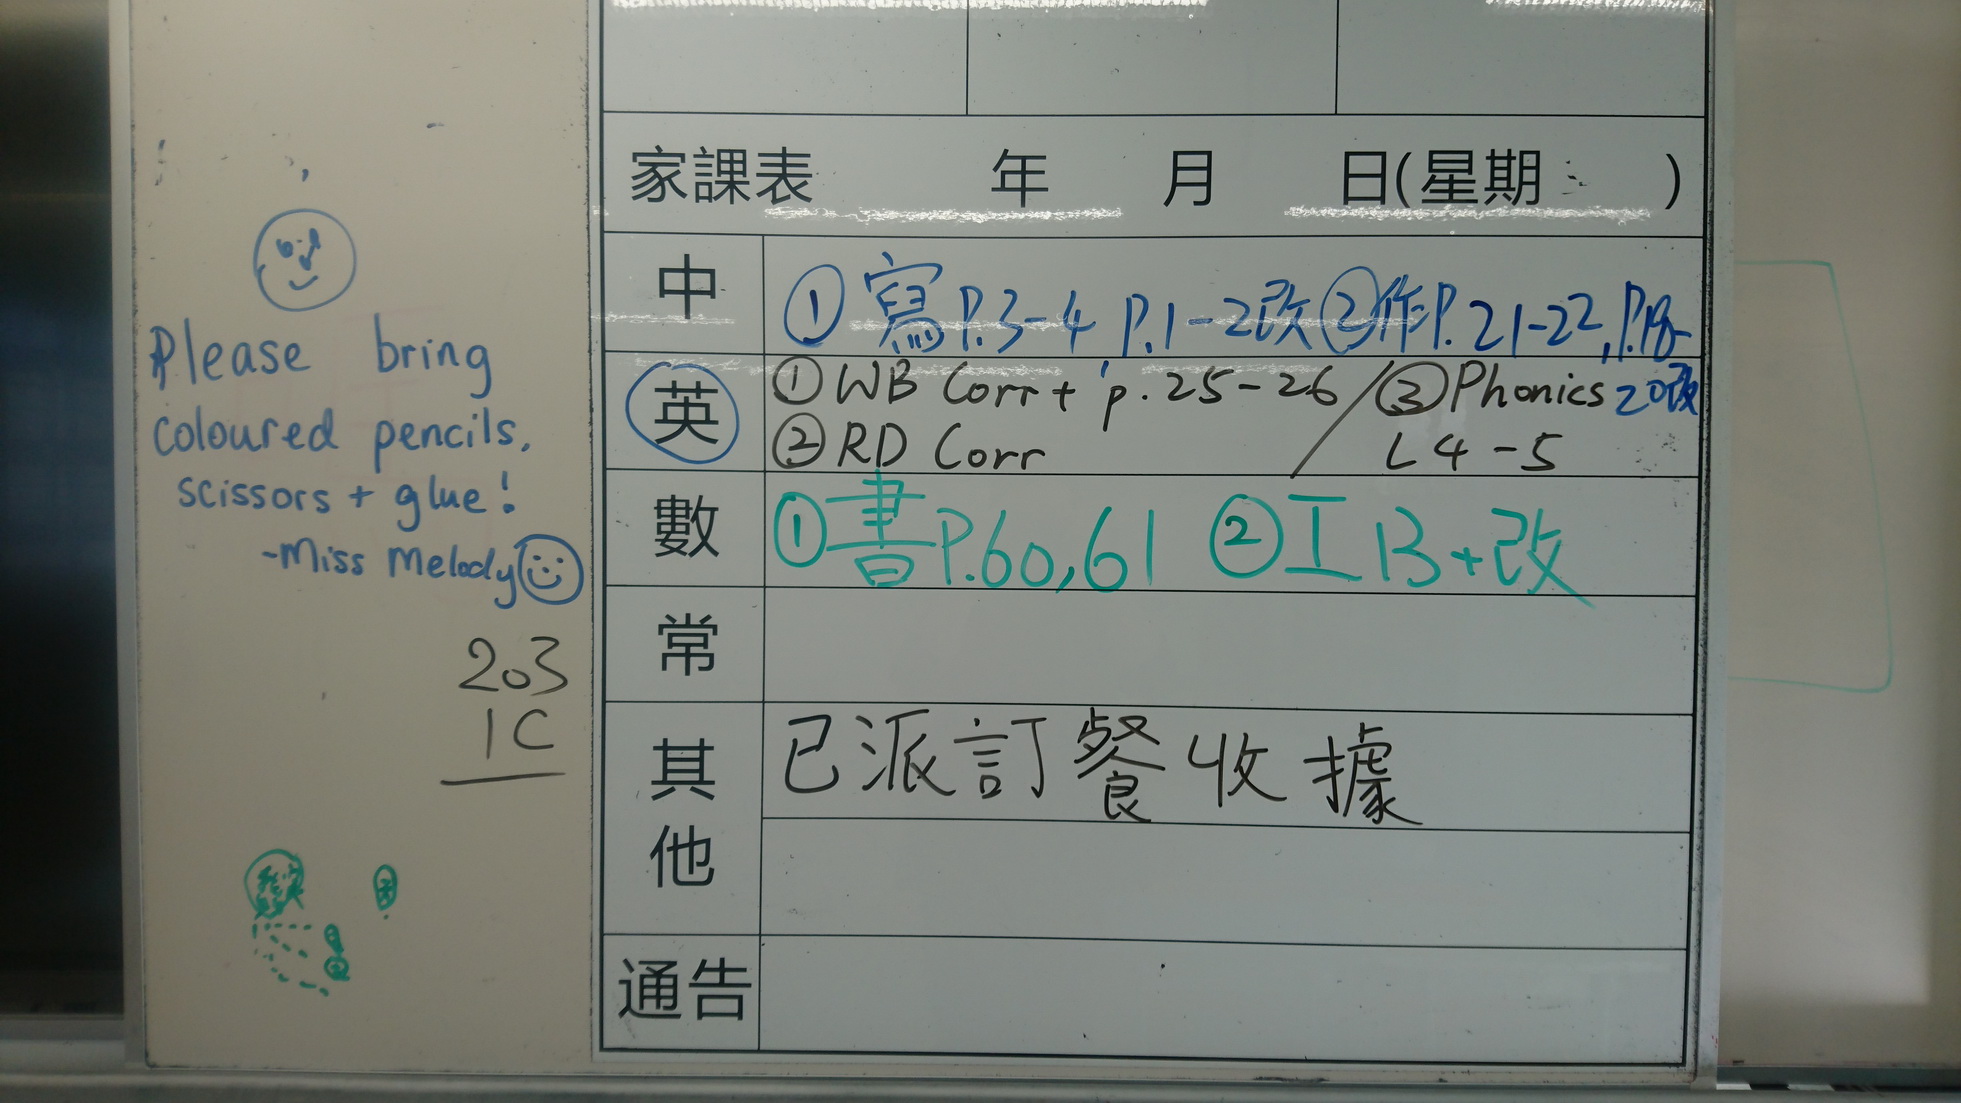 Please bring
coloured pencils,
scissors + glue!
-Miss Melody
203
1C
家課表 年 月 日(星期 )
中 ①寫P.3-4 P.1-2改 ②作P.21-22, P.18-
20改
英 ①WB Corr + p.25-26 / ③Phonics
②RD Corr / L4-5
數 ①書P.60,61 ②工13+改
常
其他 已派訂餐收據
通告